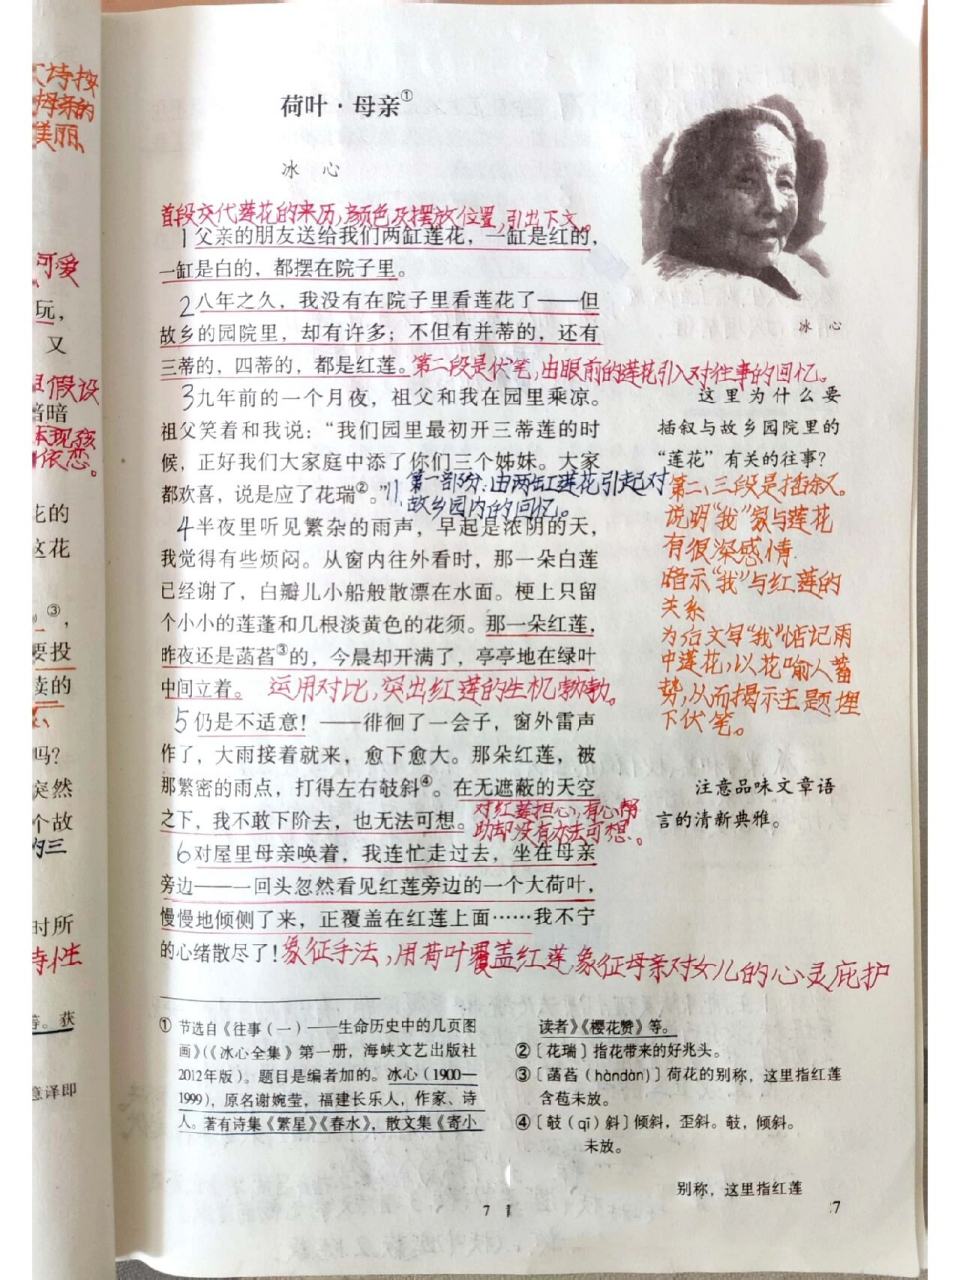 文诗按
母亲的
美丽
可爱
玩，
又
假设
暗暗
体现孩
依恋。
花的
这花
③，
要投
读的
吗？
突然
个故
的三
时所
诗性
等。获
意译即
荷叶·母亲①
冰 心
冰 心
首段交代莲花的来历，颜色及摆放位置，引出下文。
1父亲的朋友送给我们两缸莲花，一缸是红的，
一缸是白的，都摆在院子里。
2八年之久，我没有在院子里看莲花了——但
故乡的园院里，却有许多；不但有并蒂的，还有
三蒂的，四蒂的，都是红莲。第二段是伏笔，由眼前的莲花引入对往事的回忆。
3九年前的一个月夜，祖父和我在园里乘凉。
祖父笑着和我说：“我们园里最初开三蒂莲的时
候，正好我们大家庭中添了你们三个姊妹。大家
都欢喜，说是应了花瑞②。”//第一部分：由两缸莲花引起对
故乡园内的回忆。
4半夜里听见繁杂的雨声，早起是浓阴的天，
我觉得有些烦闷。从窗内往外看时，那一朵白莲
已经谢了，白瓣儿小船般散漂在水面。梗上只留
个小小的莲蓬和几根淡黄色的花须。那一朵红莲，
昨夜还是菡萏③的，今晨却开满了，亭亭地在绿叶
中间立着。 运用对比，突出红莲的生机勃勃。
5仍是不适意！——徘徊了一会子，窗外雷声
作了，大雨接着就来，愈下愈大。那朵红莲，被
那繁密的雨点，打得左右攲斜④。在无遮蔽的天空
之下，我不敢下阶去，也无法可想。
对红莲担心，有心帮
助却没有办法可想。
6对屋里母亲唤着，我连忙走过去，坐在母亲
旁边——一回头忽然看见红莲旁边的一个大荷叶，
慢慢地倾侧了来，正覆盖在红莲上面……我不宁
的心绪散尽了！象征手法，用荷叶覆盖红莲，象征母亲对女儿的心灵庇护
这里为什么要
插叙与故乡园院里的
“莲花”有关的往事？
第二、三段是插叙。
说明“我”家与莲花
有很深感情.
暗示“我”与红莲的
关系
为后文写“我”惦记雨
中莲花，以花喻人蓄
势，从而揭示主题埋
下伏笔。
注意品味文章语
言的清新典雅。
① 节选自《往事（一）——生命历史中的几页图
画》（《冰心全集》第一册，海峡文艺出版社
2012年版）。题目是编者加的。冰心（1900—
1999），原名谢婉莹，福建长乐人，作家、诗
人。著有诗集《繁星》《春水》，散文集《寄小
读者》《樱花赞》等。
②〔花瑞〕指花带来的好兆头。
③〔菡萏（hàndàn）〕荷花的别称，这里指红莲
含苞未放。
④〔攲（qī）斜〕倾斜，歪斜。攲，倾斜。
未放。
别称，这里指红莲
7
7